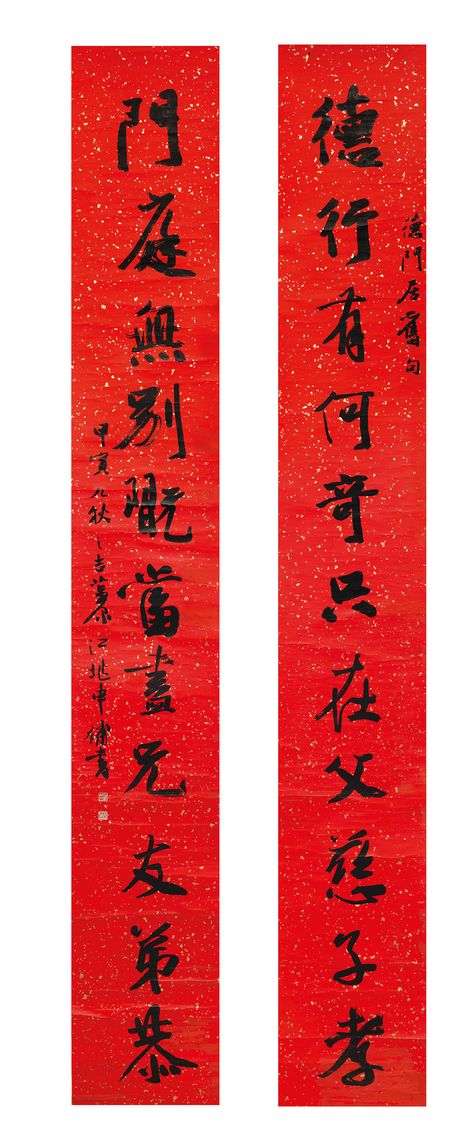 德行有何奇只在父慈子孝
德門居舊句
門庭無別貺當盡兄友弟恭
甲寅九秋之吉茮原江兆申補書